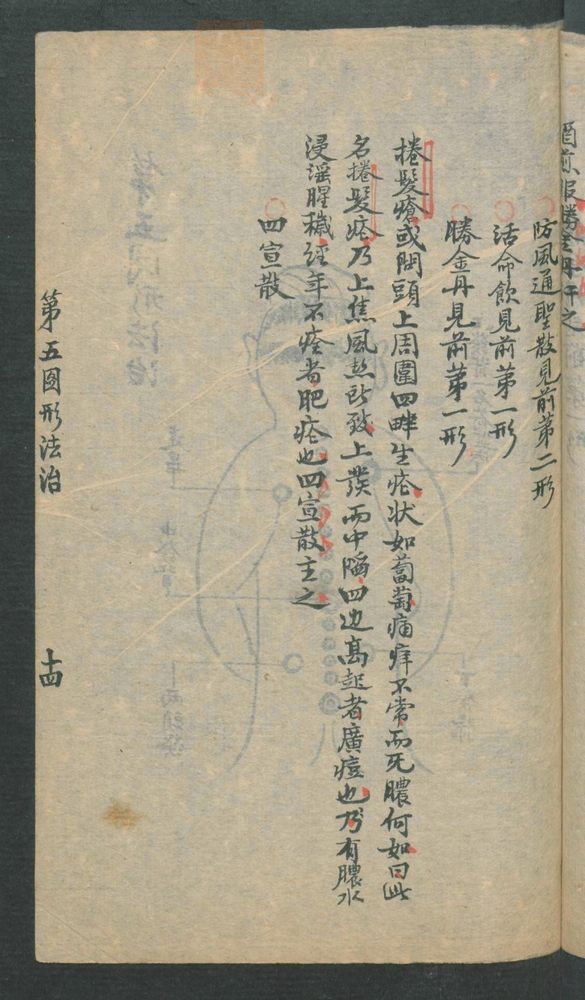 防風通聖散見前第二形
活命飲見前第一形
勝金丹見前第一形
捲髮瘡或問頭上周圍四畔生瘡状如葡萄痛痒不常而死膿何如曰此
名捲髮瘡乃上焦風热所致上發而中陷四边高起者廣痘也乃有膿水
浸滛腥穢经年不痊者肥瘡也四宣散主之
四宣散
第五图形法治
十四